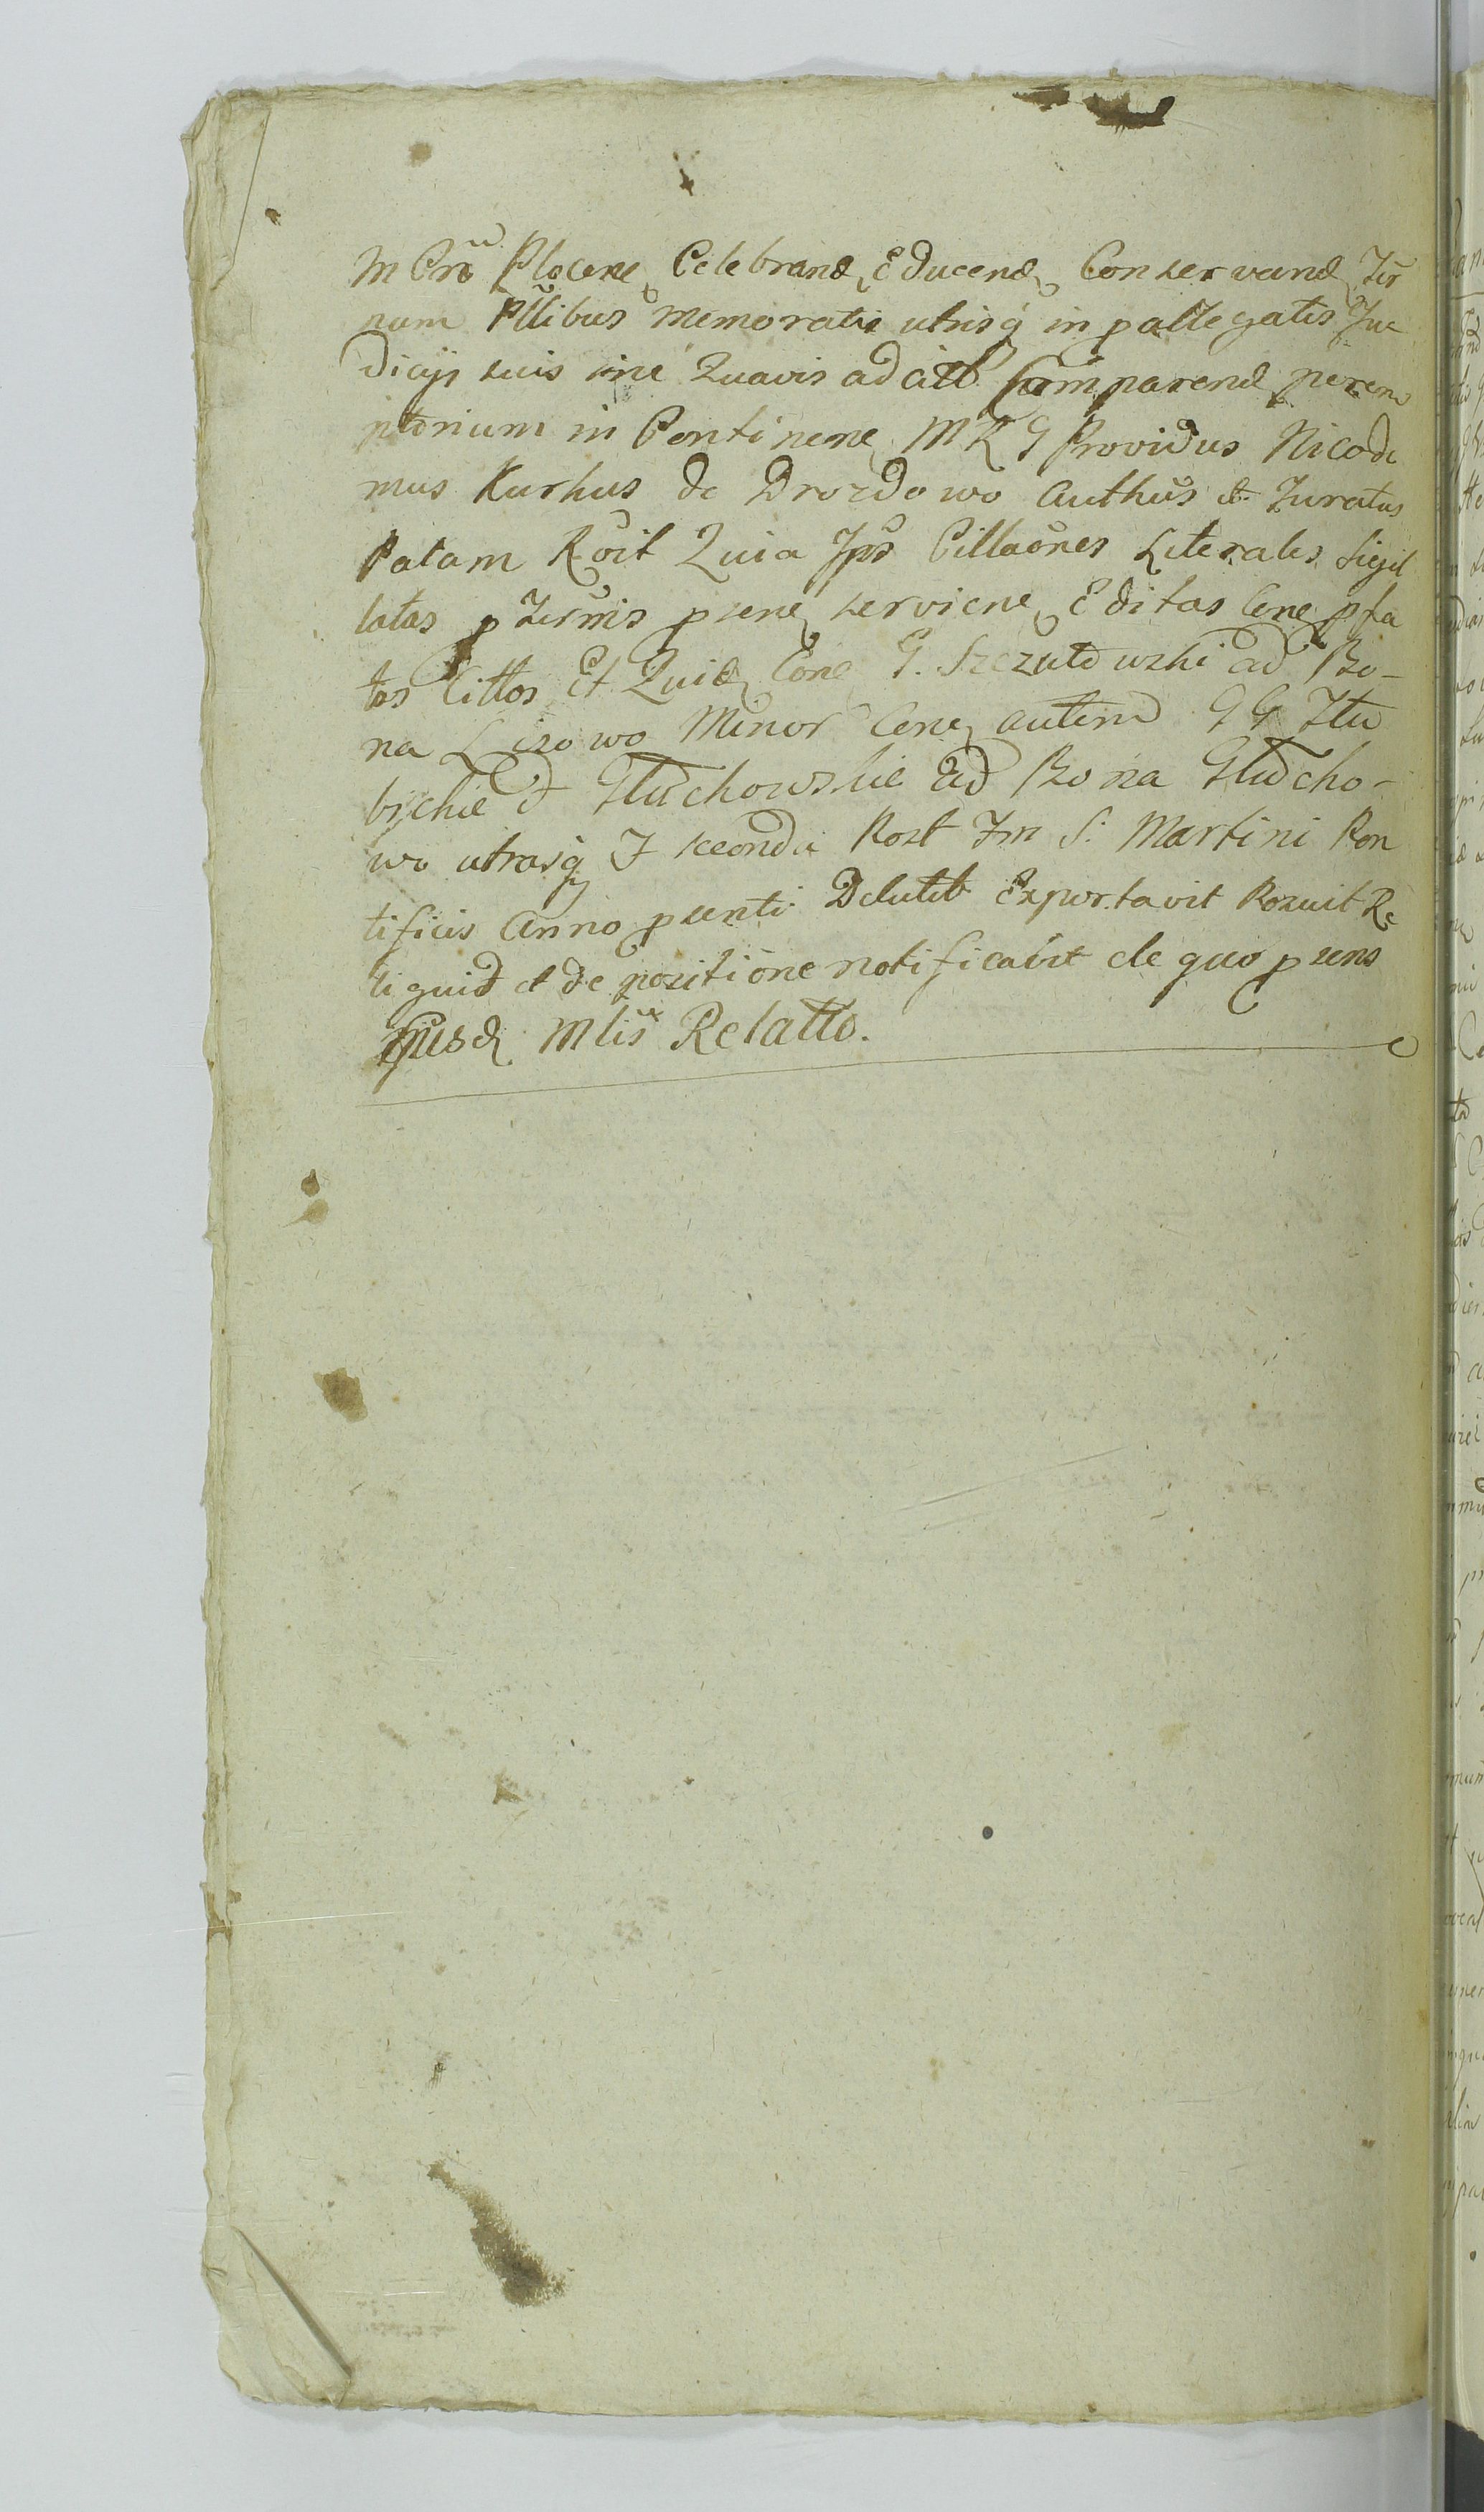 in Crō Plocen Celebrand Educend Conservand Ter
num Pttibus memoratis utrisq in pallegatis Ju
dicijs suis sine Quavis ad citt Comparend perem
ptorium in Continen MRG Providus Nicode
mus Kurkus de Drozdowo Authus et Juratus
Palam Rōit Quia Ips Cittaōnes Literales Sigil
latas p Termis psen servien Editas Cone pfa
tos Cittos Et Quid Cone G. Szczutowski ad Bo-
na Lisowo Minor Cone autem GG
bickie et Głuchowskie ad Bona Głucho-
wo utrasq F secunda Post Fm S. Martini Pon
tificis Anno psenti Detulit Exportavit Posuit Re
liquid et de positione notificavit de quo psens
Ejusd Mlis Relatto.